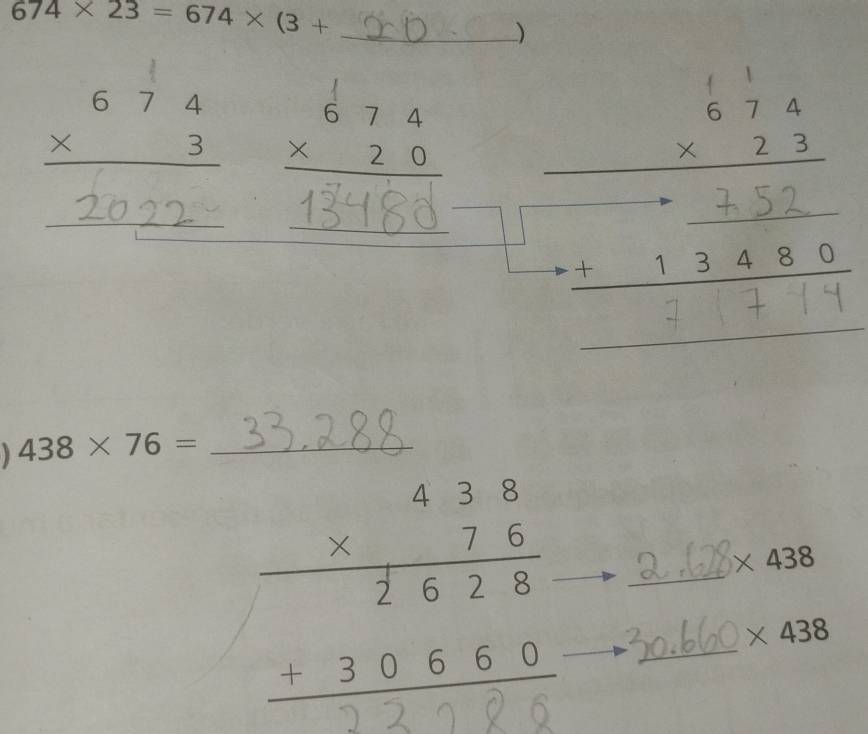 674 × 23 = 674 × (3 + 20)
1
6 7 4
× 3
2022
1
6 7 4
× 2 0
13480
1 1
6 7 4
× 2 3
752
+ 1 3 4 8 0
7 1 7 4 4
) 438 × 76 = 33.288
4 3 8
× 7 6
1
2 6 2 8 → 2.628 × 438
+ 3 0 6 6 0 → 30.660 × 438